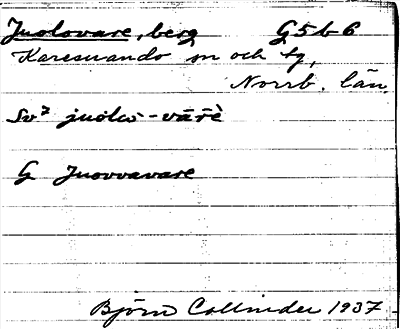 Juolovare, berg G5b6
Karesuando sn och tg,
Norrb. län
Sv⁷ juólo-vārē
G Juovvavare
Björn Collinder 1937